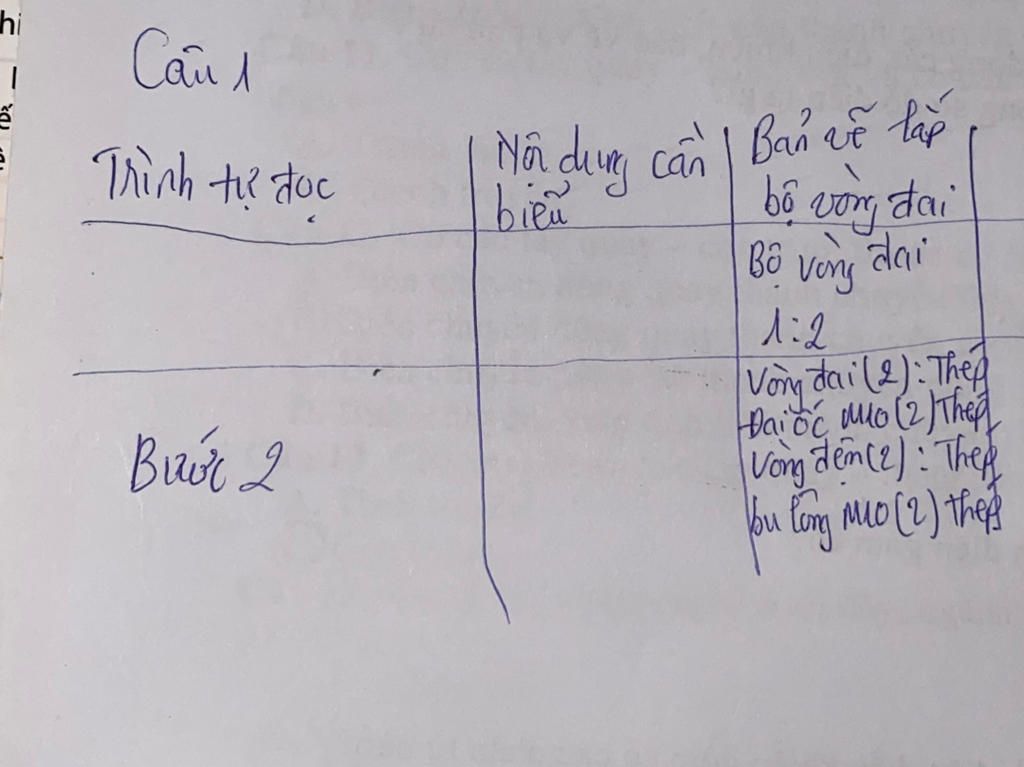 Câu 1
Trình tự đọc
Nội dung cần
biểu
Bản vẽ lắp
bộ vòng đai
Bộ vòng đai
1:2
Bước 2
Vòng đai (2): Thép
Đai ốc M10 (2) Thép
Vòng đệm (2): Thép
bu lông M10 (2) thép